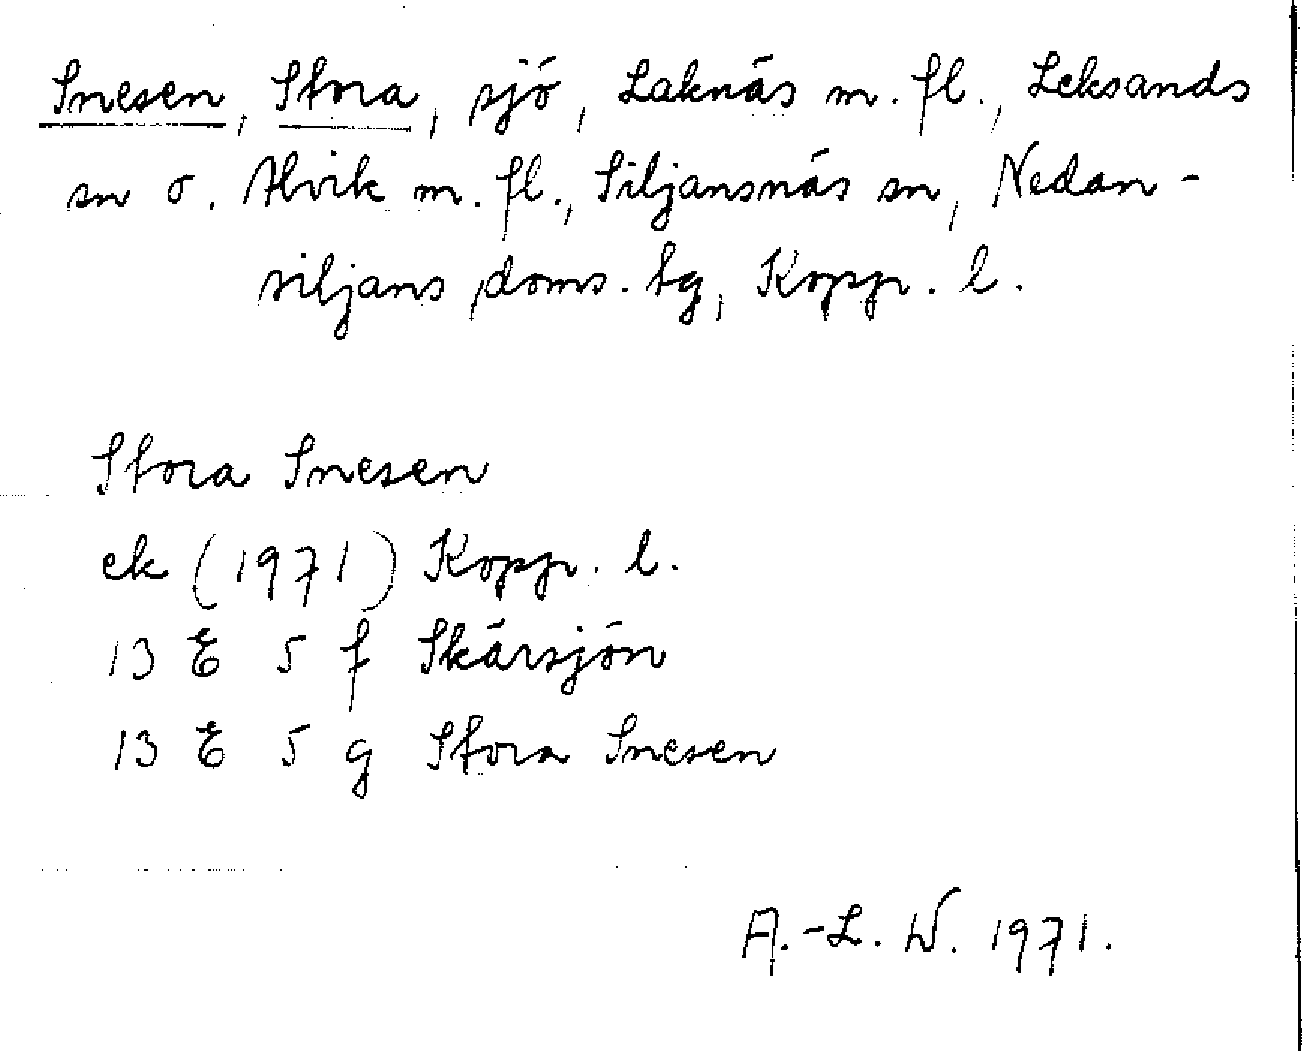 Snesen, Stora, sjö, Laknäs m. fl., Leksands
sn o. Alvik m. fl., Siljansnäs sn, Nedan-
siljans doms. tg, Kopp. l.
Stora Snesen
ek (1971) Kopp. l.
13 E 5 f Skärsjön
13 E 5 g Stora Snesen
A.-L. W. 1971.